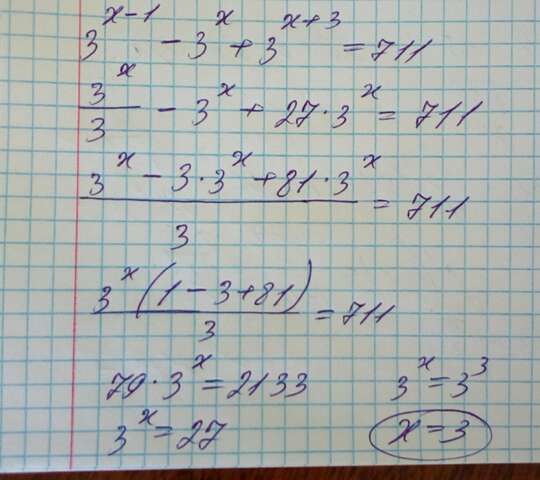 3^(x-1) - 3^x + 3^(x+3) = 711
3^x/3 - 3^x + 27·3^x = 711
(3^x - 3·3^x + 81·3^x)/3 = 711
3^x(1-3+81)/3 = 711
79·3^x = 2133 3^x = 3^3
3^x = 27 x = 3